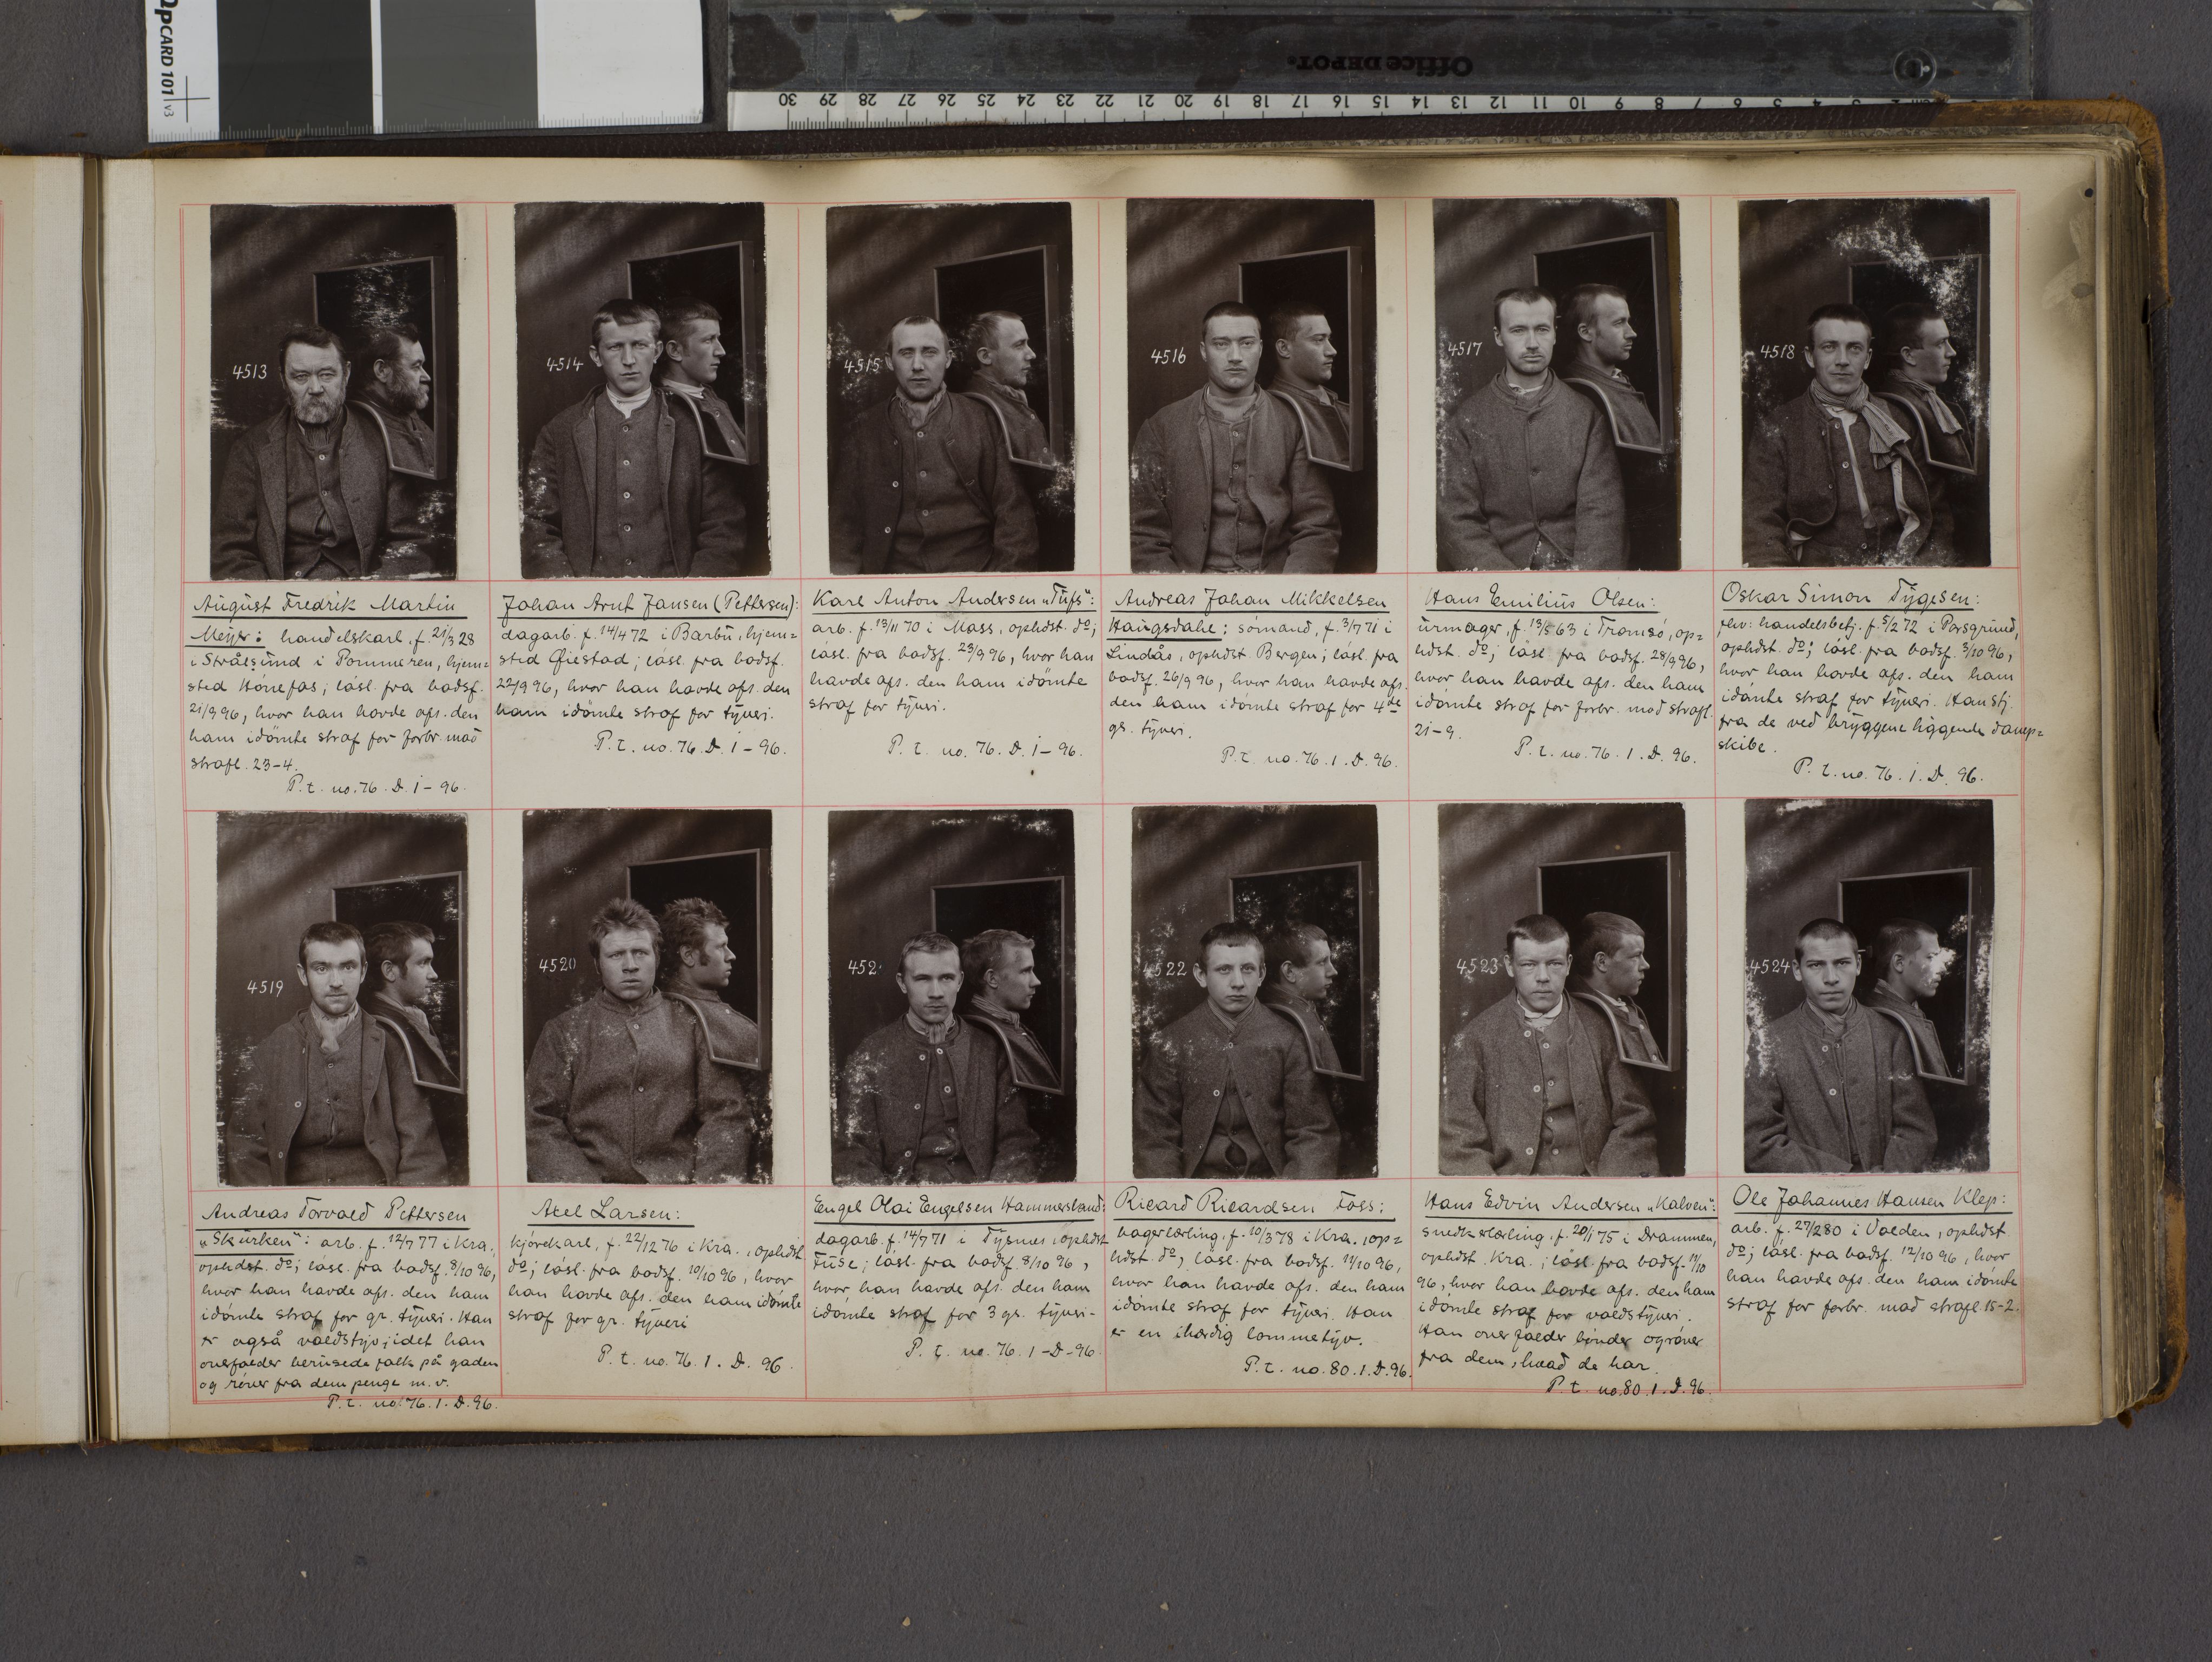 QPCARD 101 v3
Office DEPOT.
30 29 28 27 26 25 24 23 22 21 20 19 18 17 16 15 14 13 12 11 10 9 8 7 6 5 4 3 2
4513
4514
4515
4516
4517
4518
August Fredrik Martin
Meyer: handelskarl, f. 21/3 28
i Strålsund i Pommeren, hjem=
sted Hönefos; løsl. fra bodsf.
21/9 96, hvor han havde afs. den
ham idömte straf for forbr. mod
strafl. 23-4.
P.t. no. 76. D. 1-96.
Johan Arnt Jansen (Pettersen):
dagarb. f. 14/4 72 i Barbu, hjem=
sted Øiestad; løsl. fra bodsf.
22/9 96, hvor han havde afs. den
ham idömte straf for tyveri.
P.t. no. 76. D. 1-96.
Karl Anton Andersen „Tufs":
arb. f. 13/11 70 i Moss, opholdst. do;
løsl. fra bodsf. 23/9 96, hvor han
havde afs. den ham idömte
straf for tyveri.
P.t. no. 76. D. 1-96.
Andreas Johan Mikkelsen
Haugsdahl: sömand, f. 3/7 71 i
Lindås, ophdst. Bergen; løsl. fra
bodsf. 26/9 96, hvor han havde afs.
den ham idömte straf for 4de
g. tyveri.
P.t. no. 76. 1. D. 96.
Hans Emilius Olsen:
urmager, f. 13/5 63 i Tromsö, op=
hdst. do; løsl. fra bodsf. 28/9 96,
hvor han havde afs. den ham
idömte straf for forbr. mod strafl.
21-9.
P.t. no. 76. 1. D. 96.
Oskar Simon Tygesen:
fhv. handelsbetj. f. 5/2 72 i Porsgrund,
ophdst. do; løsl. fra bodsf. 3/10 96,
hvor han havde afs. den ham
idömte straf for tyveri. Han stj.
fra de ved bryggene liggende damp=
skibe.
P.t. no. 76. 1. D. 96.
4519
4520
452
4522
4523
4524
Andreas Torvald Pettersen
„Skurken": arb. f. 12/7 77 i Kra.,
ophdst. do; løsl. fra bodsf. 8/10 96,
hvor han havde afs. den ham
idömte straf for gr. tyveri. Han
er også voldstyv, idet han
overfalder berusede folk på gaden
og röver fra dem penge m.v.
P.t. no. 76. 1. D. 96.
Axel Larsen:
kjörekarl, f. 22/12 76 i Kra., ophdst.
do; løsl. fra bodsf. 10/10 96, hvor
han havde afs. den ham idömte
straf for gr. tyveri
P.t. no. 76. 1. D. 96.
Engel Olai Engelsen Hammersland:
dagarb. f. 14/7 71 i Tysnes, ophdst
Fuse; løsl. fra bodsf. 8/10 96,
hvor han havde afs. den ham
idömte straf for 3 g. tyveri-
P.t. no. 76. 1-D-96.
Rikard Rikardsen Foss:
bagerlærling, f. 10/3 78 i Kra., op=
hdst. do; løsl. fra bodsf. 11/10 96,
hvor han havde afs. den ham
idömte straf for tyveri. Han
er en ihærdig lommetyv.
P.t. no. 80. 1. D. 96.
Hans Edvin Andersen „Kalven":
snedkerlærling, f. 20/1 75 i Drammen,
ophdst. Kra.; løsl. fra bodsf. 11/10
96, hvor han havde afs. den ham
idömte straf for voldstyveri.
Han overfalder bönder og röver
fra dem, hvad de har.
P.t. no. 80. 1. D. 96.
Ole Johannes Hansen Klep:
arb. f. 27/2 80 i Volden, ophdst
do; løsl. fra bodsf. 12/10 96, hvor
han havde afs. den ham idömte
straf for forbr. mod strafl. 15-2.